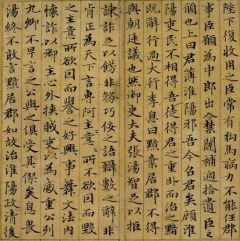 陛下復收用之臣常有狗馬病力不能任郡
事臣願為中郎出入禁闥補過拾遺臣之
願也上曰君薄淮陽邪吾今召君矣顧淮
陽吏民不相得吾徒得君之重臥而治之黯
既辭行過大行李息曰黯棄居郡不得
與朝廷議然御史大夫張湯智足以拒
諫詐足以飾非務巧佞之語辯數之辭非
肯正為天下言專阿主意所不欲因而毀
之主意所欲因而譽之好興事舞文法內
懷詐以御主心外挾賊吏以為威重公列
九卿不早言之公與之俱受其僇矣息畏
湯終不敢言黯居郡如故治淮陽政清後